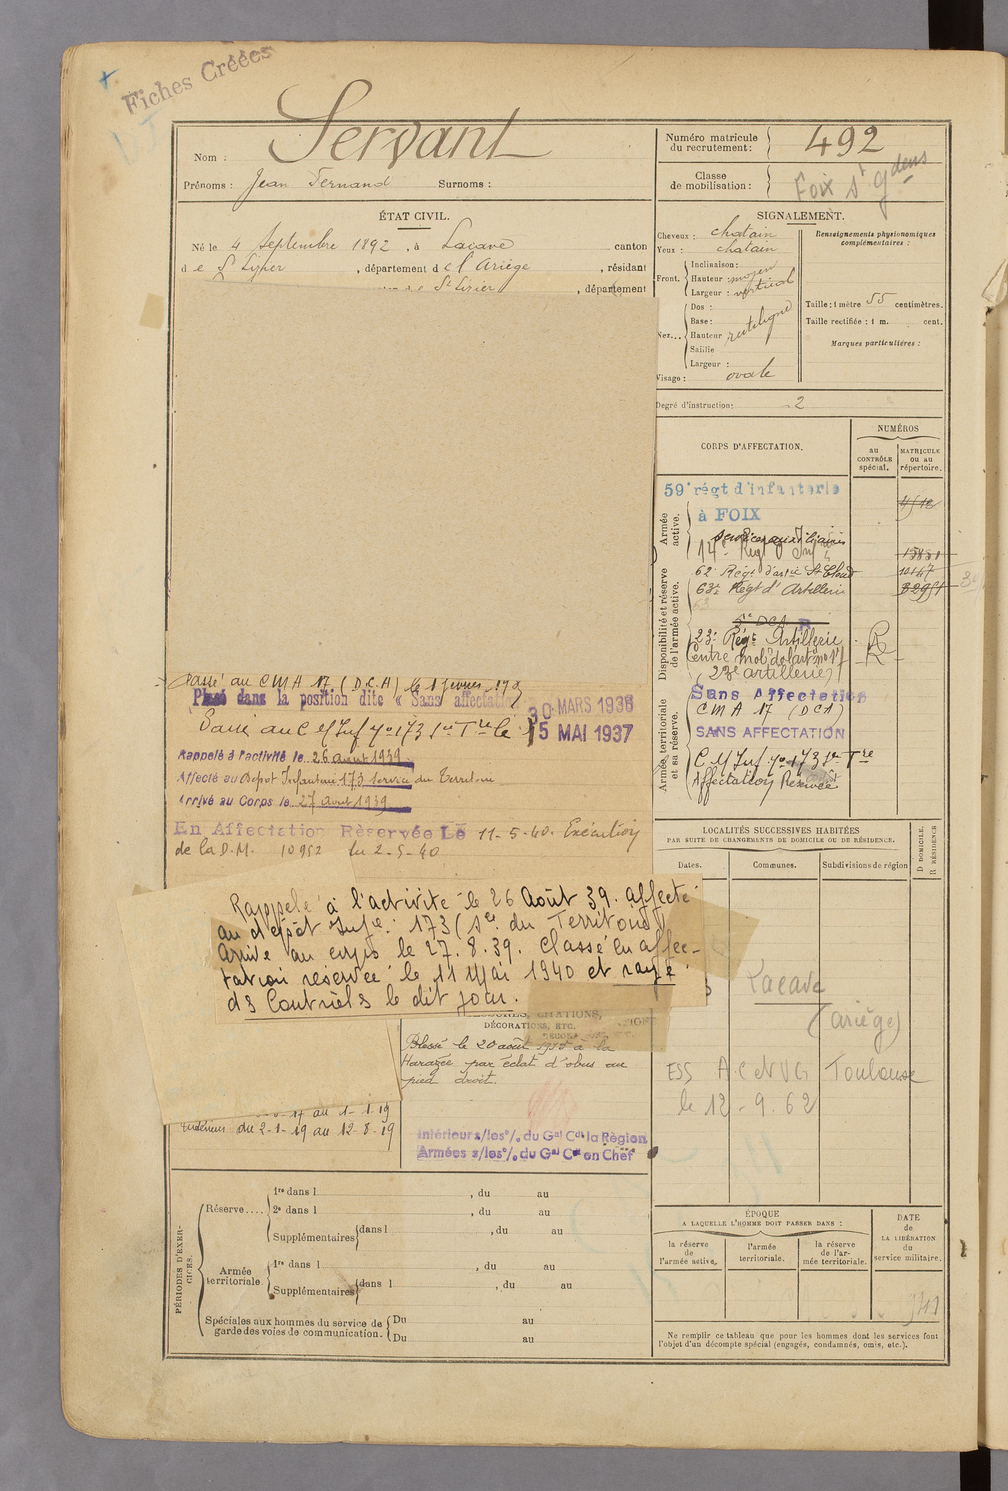 Fiches Créées
Nom : Servant
Prénoms : Jean Fernand Surnoms :
Numéro matricule du recrutement : 492
Classe de mobilisation :
Foix St Gdens
ÉTAT CIVIL.
Né le 4 Septembre 1892, à Lacave canton
de St Lizier, département de l'Ariège, résidant
St Lizier, département
SIGNALEMENT.
Cheveux : chatain
Yeux : chatain
Front.
Inclinaison :
Hauteur : moyen
Largeur : vertical
Nez...
Dos :
Base :
Hauteur rectiligne
Saillie
Largeur :
Visage : ovale
Renseignements physionomiques complémentaires :
Taille : 1 mètre 55 centimètres.
Taille rectifiée : 1 m. cent.
Marques particulières :
Degré d'instruction : 2
CORPS D'AFFECTATION.
NUMÉROS
au CONTRÔLE spécial.
MATRICULE ou au répertoire.
Armée active.
59e régt d'infanterie
à FOIX
14e Régt d'Inf
Disponibilité et réserve de l'armée active.
62e Régt d'artie St Cloud 10147
63e Régt d'Artillerie
23e Régt Artillerie
Centre mob. de l'art. no 17
(23e artillerie)
Armée territoriale et sa réserve.
Sans Affectation
CMA 17 (DCA)
SANS AFFECTATION
C M Inf no 173 Sce Tre
Affectation Réservée
Passé au CMA 17 (D.C.A)
Placé dans la position dite « Sans affectation
30 MARS 1936
Passé au C M Inf no 173 Sce Tre le 15 MAI 1937
Rappelé à l'activité le 26 août 1939.
Affecté au Dépot Infanterie 173 Service du Territoire
Arrivé au Corps le 27 août 1939
En Affectation Réservée Le 11-5-40. Exécution
de la D.M. 10952 du 2-5-40
Rappelé à l'activité le 26 Août 39. affecté
au dépôt Infie 173 (Sce du Territoire)
Arrivé au corps le 27.8.39. Classé en affec-
tation réservée le 11 Mai 1940 et rayé
ds Contrôles le dit jour.
CITATIONS,
DÉCORATIONS, ETC.
Blessé le 20 août 1915 à la
Harazée par éclat d'obus au
pied droit.
17 au 1-1-19
Intérieur du 2-1-19 au 12-8-19
Intérieur s/les o/. du Gal Cdt la Région
Armées s/les o/. du Gal Ct en Chef
LOCALITÉS SUCCESSIVES HABITÉES
PAR SUITE DE CHANGEMENTS DE DOMICILE OU DE RÉSIDENCE.
Dates.
Communes.
Subdivisions de région
D DOMICILE.
R RÉSIDENCE
Lacave
(Ariège)
ESS ACDVG Toulouse
le 12-9.62
PÉRIODES D'EXERCICES.
Réserve....
1re dans l , du au
2e dans l , du au
Supplémentaires dans l , du au
Armée territoriale.
1re dans l , du au
Supplémentaires dans l , du au
Spéciales aux hommes du service de garde des voies de communication.
Du au
Du au
ÉPOQUE
A LAQUELLE L'HOMME DOIT PASSER DANS :
la réserve de l'armée active,
l'armée territoriale.
la réserve de l'armée territoriale.
DATE
de
LA LIBÉRATION
du
service militaire.
Ne remplir ce tableau que pour les hommes dont les services font
l'objet d'un décompte spécial (engagés, condamnés, omis, etc.).